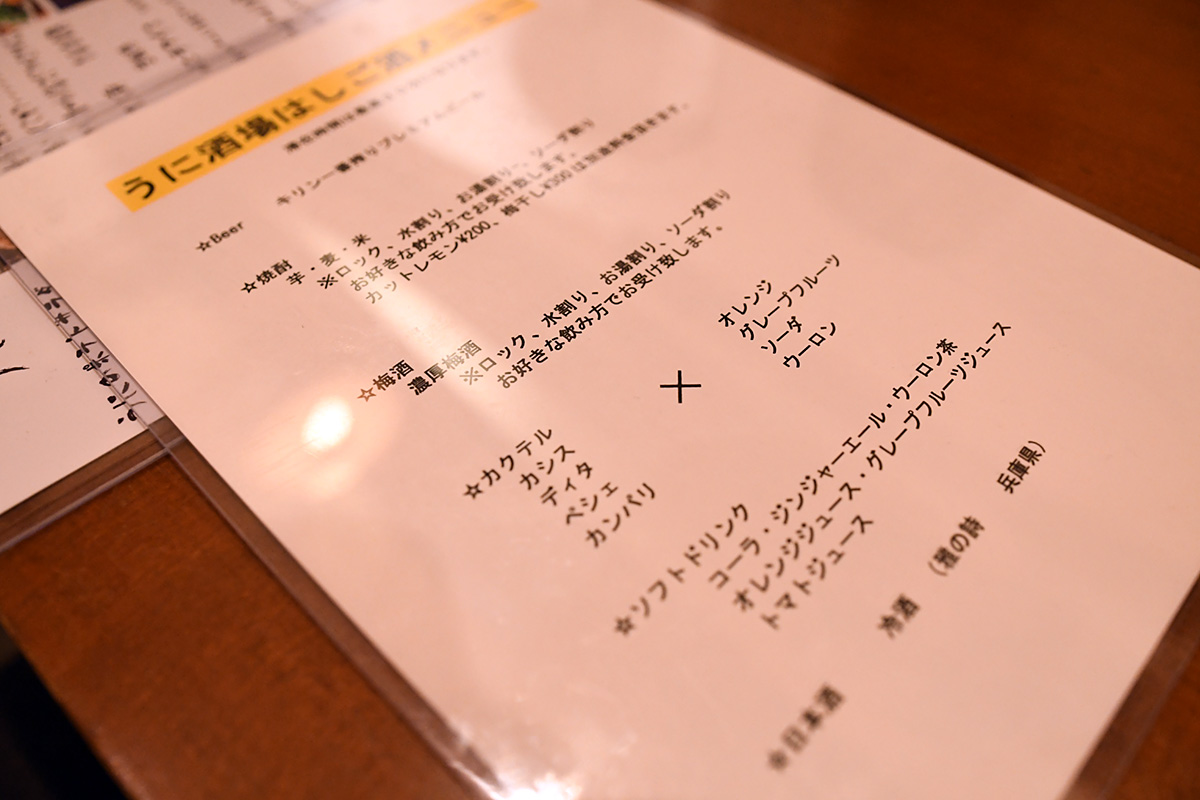 うに酒場はしご酒
キリン一番搾りプレミアムビール
☆Beer
☆焼酎
芋・麦・米
※ロック、水割り、お湯割り、ソーダ割り
お好きな飲み方でお受け致します。
カットレモン¥200、梅干し¥300は別途料金頂きます。
☆梅酒
濃厚梅酒
※ロック、水割り、お湯割り、ソーダ割り
お好きな飲み方でお受け致します。
☆カクテル
カシス
ディタ
ペシェ
カンパリ
×
オレンジ
グレープフルーツ
ソーダ
ウーロン
☆ソフトドリンク
コーラ・ジンジャーエール・ウーロン茶
オレンジジュース・グレープフルーツジュース
トマトジュース
☆日本酒
冷酒
(雅の詩
兵庫県)